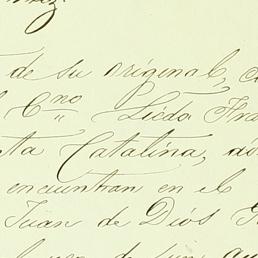 de su original, c
C^no Licdo Fra
ta Catalina, do
encuentran en el
Juan de Dios G